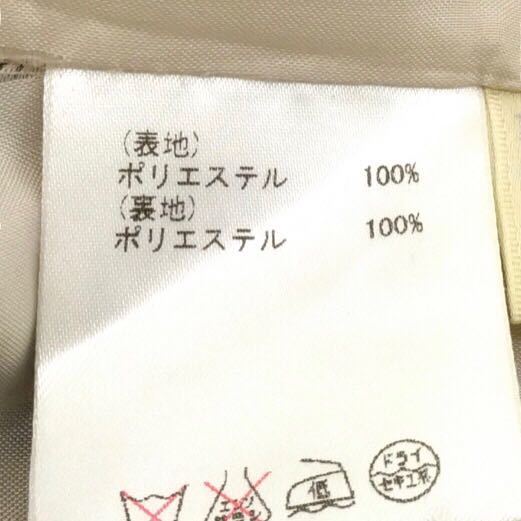 (表地)
ポリエステル 100%
(裏地)
ポリエステル 100%
低
ドライ
セキユ系
エンソ